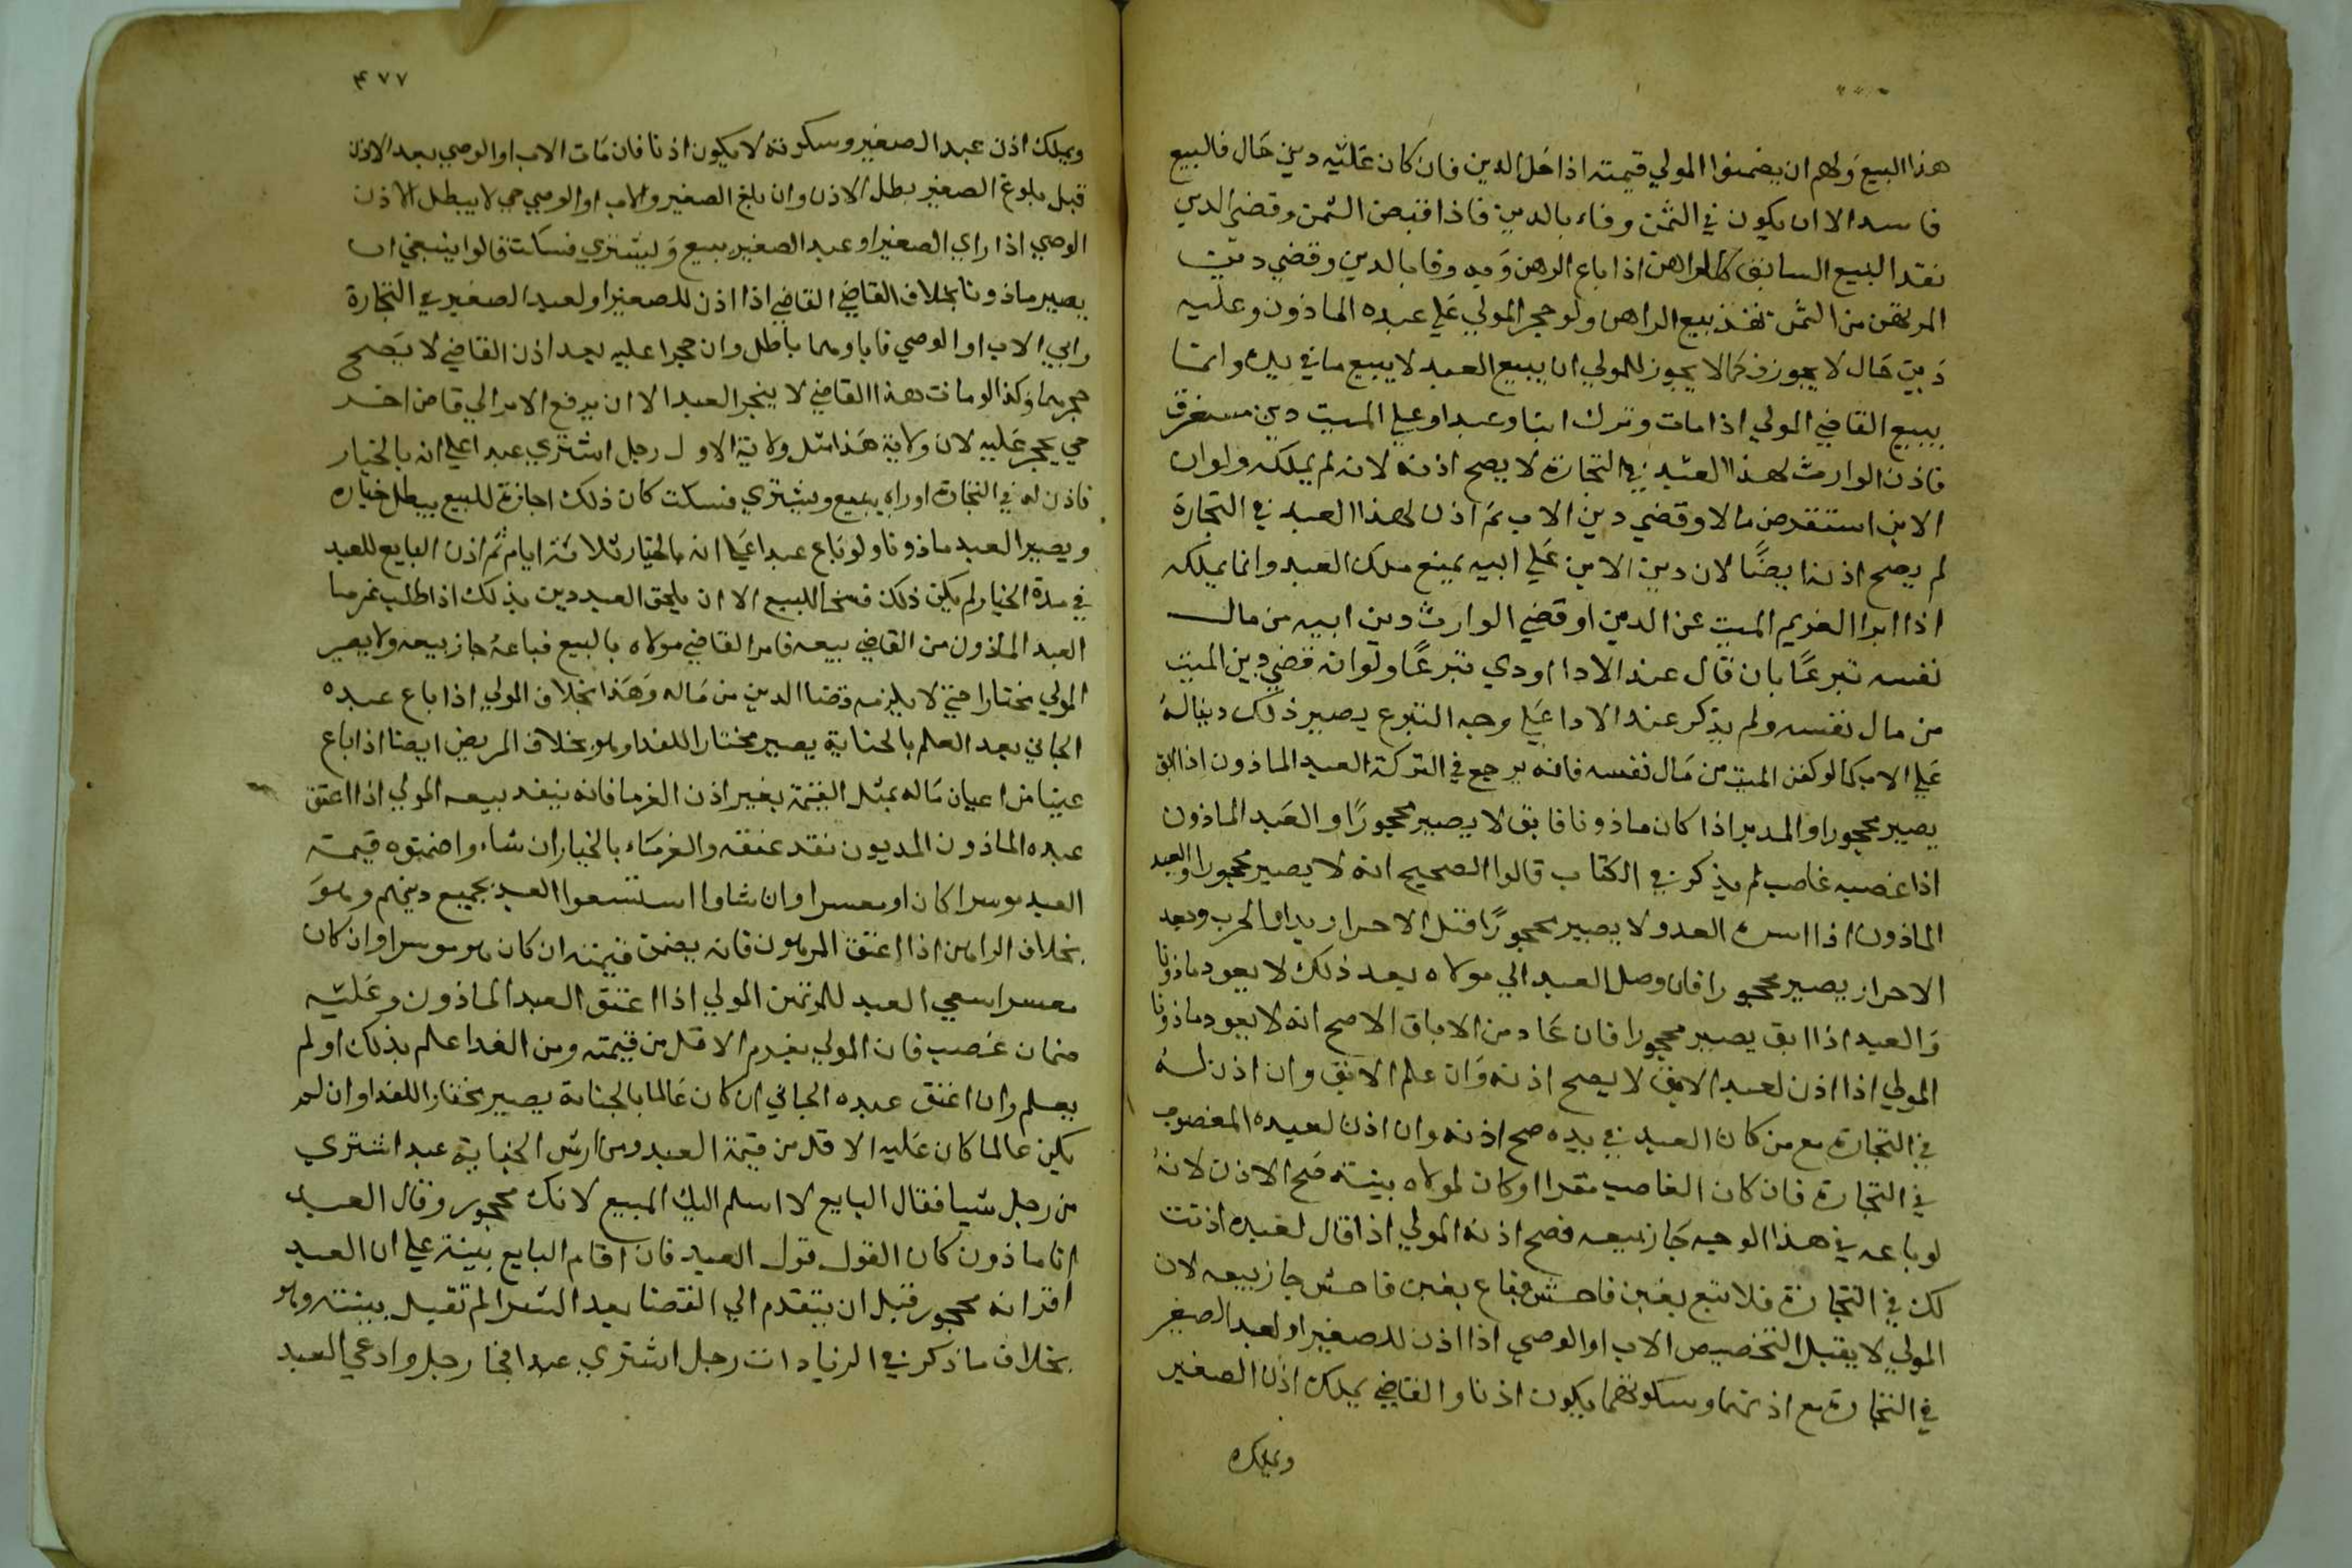 هذا البيع ولهم ان يضمنوا المولي قيمته اذا حل الدين فان كان عليه دين حال فالبيع
فاسد الا ان يكون في الثمن وفاء بالدين فاذا اقتبض الثمن وقضي الدين
نفد البيع السابق كالراهن اذا باع الرهن وفيه وفا بالدين وقضي دين
المرتهن من الثمن نفذ بيع الراهن ولو حجر المولي علي عبده الماذون وعليه
دين حال لا يجوز فكما لا يجوز للمولي ان يبيع العبد لا يبيع ما في يده وانما
يبيع القاضي المولي اذا مات وترك ابنا وعبدا وعلي الميت دين مستغرق
فاذن الوارث لهذا العبد في التجارة لا يصح اذنه لانه لم يملكه ولو ان
الابن استقرض مالا وقضي دين الاب ثم اذن لهذا العبد في التجارة
لم يصح اذنه ايضًا لان دين الابن علي ابيه يمنع ملك العبد وانما يملكه
اذا ابرا الغريم الميت عن الدين او قضي الوارث دين ابيه من مال
نفسه تبرعًا بان قال عند الادا اودي تبرعًا ولو انه قضي دين الميت
من مال نفسه ولم يذكر عند الادا علي وجه التبرع يصير ذلك دينا له
علي الاب كما لو كفن الميت من مال نفسه فانه يرجع في التركة العبد الماذون اذا ابق
يصير محجورا والمدبر اذا كان ماذونا فابق لا يصير محجورًا والعبد الماذون
اذا غصبه غاصب لم يذكر في الكتاب قالوا الصحيح انه لا يصير محجورا والعبد
الماذون اذا اسره العدو لا يصير محجورًا قبل الاحراز بدار الحرب وبعد
الاحراز يصير محجورا فان وصل العبد الي مولاه بعد ذلك لا يعود ماذونا
والعبد اذا ابق يصير محجورا فان عاد من الاباق الاصح انه لا يعود ماذونا
المولي اذا اذن لعبد الابق لا يصح اذنه وان علم الابق وان اذن له
في التجارة مع من كان العبد في يده صح اذنه وان اذن لعبده المغصوب
في التجارة فان كان الغاصب مقرا او كان لمولاه بينة صح الاذن لانه
لو باعه في هذا الوجه جاز بيعه فصح اذنه المولي اذا قال لعبده اذنت
لك في التجارة فلا تبع بغبن فاحش فباع بغبن فاحش جاز بيعه لان
المولي لا يقبل التخصيص الاب او الوصي اذا اذن للصغير او لعبد الصغير
في التجارة صح اذنهما وسكوتهما يكون اذنا والقاضي يملك اذن الصغير
ويملك
٤٧٧
ويملك اذن عبد الصغير وسكوته لا يكون اذنا فان مات الاب او الوصي بعد الاذن
قبل بلوغ الصغير بطل الاذن وان بلغ الصغير والاب او الوصي حي لا يبطل الاذن
الوصي اذا راي الصغير او عبد الصغير يبيع ويشتري فسكت قالوا ينبغي ان
يصير ماذونا بخلاف القاضي القاضي اذا اذن للصغير او لعبد الصغير في التجارة
وابي الاب او الوصي فاباوهما باطل وان حجرا عليه بعد اذن القاضي لا يصح
حجرهما وكذا لو مات هذا القاضي لا ينحجر العبد الا ان يرفع الامر الي قاض اخر
حي يحجر عليه لان ولاية هذا مثل ولاية الاول رجل اشتري عبدا علي انه بالخيار
فاذن له في التجارة او راه يبيع ويشتري فسكت كان ذلك اجازة للبيع يبطل خياره
ويصير العبد ماذونا ولو باع عبدا علي انه بالخيار ثلاثة ايام ثم اذن البايع للعبد
في مدة الخيار لم يكن ذلك فسخا للبيع الا ان يلحق العبد دين بذلك اذا طلب غرما
العبد الماذون من القاضي بيعه فامر القاضي مولاه بالبيع فباعه جاز بيعه ولا يصير
المولي مختارا حتي لا يلزمه قضا الدين من ماله وهذا بخلاف المولي اذا باع عبده
الجاني بعد العلم بالجناية يصير مختارا للفدا وهو بخلاف المريض ايضا اذا باع
عينا من اعيان ماله بمثل القيمة بغير اذن الغرما فانه ينفد بيعه المولي اذا اعتق
عبده الماذون المديون نفد عتقه والغرماء بالخيار ان شاوا ضمنوه قيمة
العبد موسرا كان او معسرا وان شاوا استسعوا العبد بجميع دينهم وهو
بخلاف الراهن اذا اعتق المرهون فانه يضمن قيمته ان كان هو موسرا وان كان
معسرا سعي العبد للمرتهن المولي اذا اعتق العبد الماذون وعليه
ضمان غصب فان المولي يغرم الاقل من قيمته ومن الفدا علم بذلك او لم
يعلم وان اعتق عبده الجاني ان كان عالما بالجناية يصير مختارا للفدا وان لم
يكن عالما كان عليه الاقل من قيمة العبد ومن ارش الجناية عبد اشتري
من رجل شيا فقال البايع لا اسلم اليك المبيع لانك محجور وقال العبد
انا ماذون كان القول قول العبد فان اقام البايع بينة علي ان العبد
اقر انه محجور قبل ان يتقدم الي القضا بعد الشرا لم تقبل بينته وهو
بخلاف ما ذكر في الزيادات رجل اشتري عبدا فجا رجل وادعي العبد